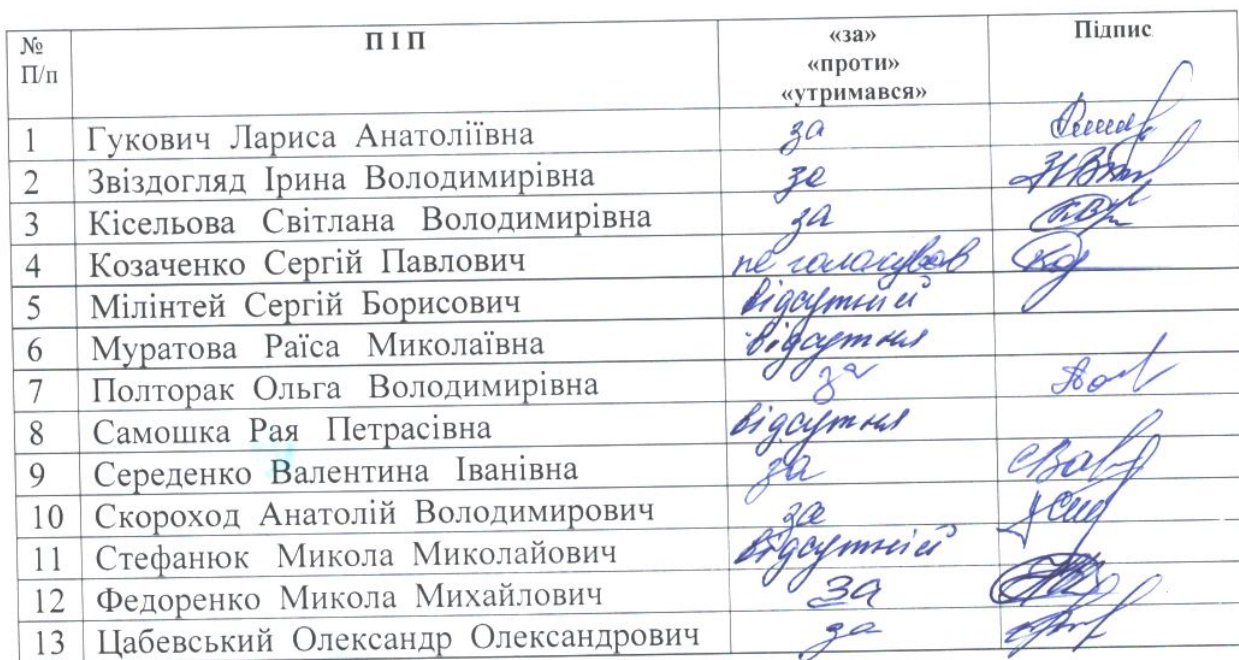 № П/п П І П «за» «проти» «утримався» Підпис
1 Гукович Лариса Анатоліївна за
2 Звіздогляд Ірина Володимирівна за
3 Кісельова Світлана Володимирівна за
4 Козаченко Сергій Павлович не голосував
5 Мілінтей Сергій Борисович відсутній
6 Муратова Раїса Миколаївна відсутня
7 Полторак Ольга Володимирівна за
8 Самошка Рая Петрасівна відсутня
9 Середенко Валентина Іванівна за
10 Скороход Анатолій Володимирович за
11 Стефанюк Микола Миколайович відсутній
12 Федоренко Микола Михайлович за
13 Цабевський Олександр Олександрович за